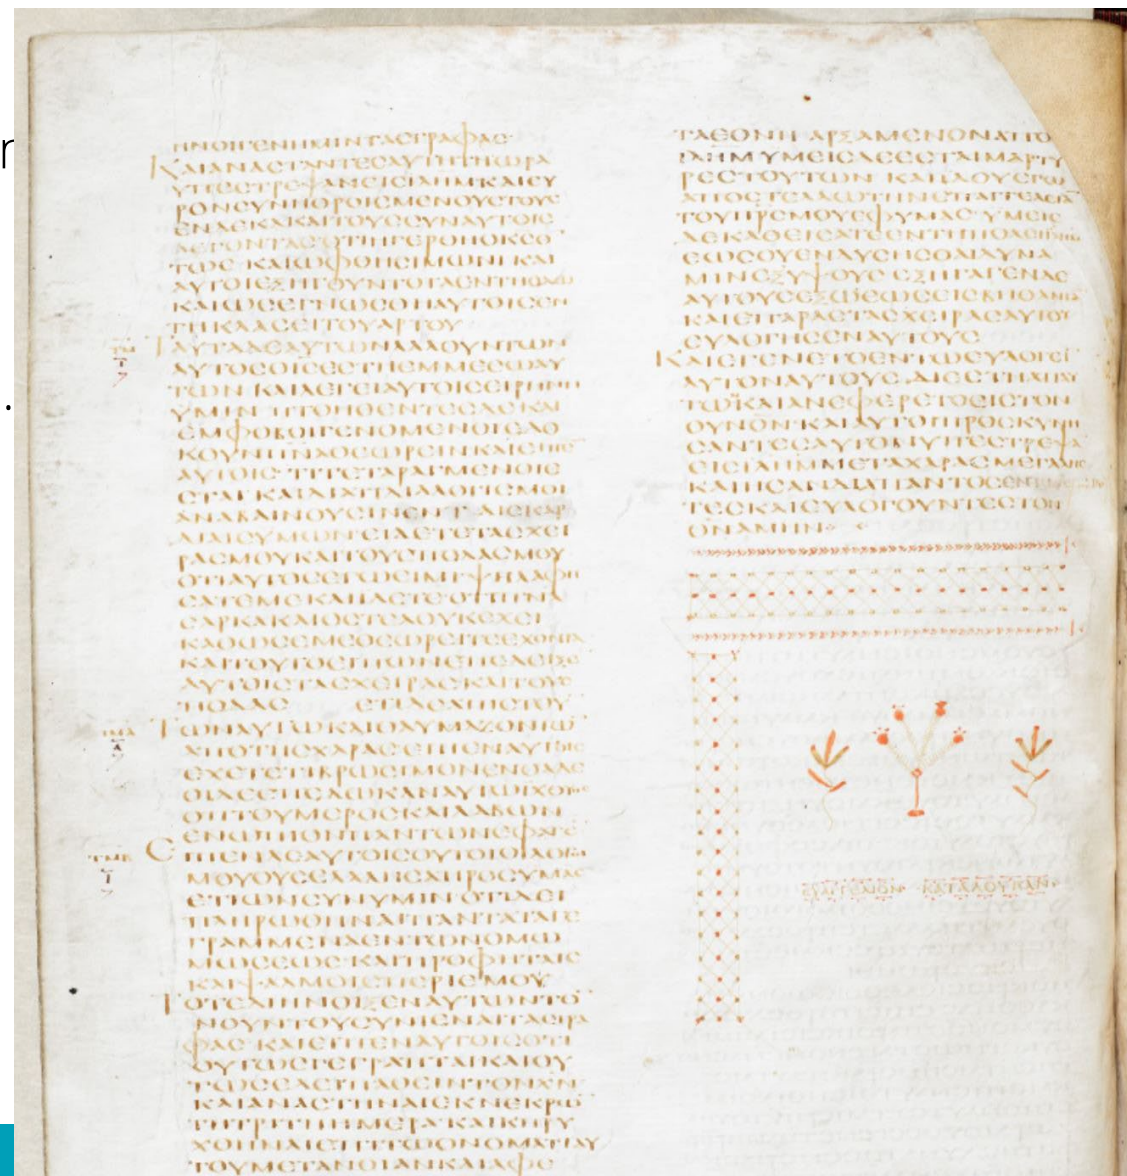 ΗΝΟΙΓΕΝΗΜΙΝΤΑϹΓΡΑΦΑϹ
ΚΑΙΑΝΑϹΤΑΝΤΕϹΑΥΤΗΤΗΩΡΑ
ΥΠΕϹΤΡΕΨΑΝΕΙϹΙΛΗΜΚΑΙΕΥ
ΡΟΝϹΥΝΗΘΡΟΙϹΜΕΝΟΥϹΤΟΥϹ
ΕΝΔΕΚΑΚΑΙΤΟΥϹϹΥΝΑΥΤΟΙϹ
ΛΕΓΟΝΤΑϹΟΤΙΗΓΕΡΘΗΟΚϹΟ
ΤΩϹ ΚΑΙΩΦΘΗϹΙΜΩΝΙ ΚΑΙ
ΑΥΤΟΙΕΞΗΓΟΥΝΤΟΤΑΕΝΤΗΟΔΩ
ΚΑΙΩϹΕΓΝΩϹΘΗΑΥΤΟΙϹΕΝ
ΤΗΚΛΑϹΕΙΤΟΥΑΡΤΟΥ
ΤΜ
ΤΑΥΤΑΔΕΑΥΤΩΝΛΑΛΟΥΝΤΩΝ
ΑΥΤΟϹΟΙϹΕϹΤΗΕΜΜΕϹΩΑΥ
ΤΩΝ ΚΑΙΛΕΓΕΙΑΥΤΟΙϹΕΙΡΗΝΗ
ΥΜΙΝ ΠΤΟΗΘΕΝΤΕϹΔΕΚΑΙ
ΕΜΦΟΒΟΙΓΕΝΟΜΕΝΟΙΕΔΟ
ΚΟΥΝΠΝΑΘΕΩΡΕΙΝΚΑΙΕΙΠΕ
ΑΥΤΟΙϹ ΤΙΤΕΤΑΡΑΓΜΕΝΟΙΕ
ϹΤΑΙ ΚΑΙΔΙΑΤΙΔΙΑΛΟΓΙϹΜΟΙ
ΑΝΑΒΑΙΝΟΥϹΙΝΕΝΤΑΙϹΚΑΡ
ΔΙΑΙϹΥΜΩΝΕΙΔΕΤΕΤΑϹΧΕΙ
ΡΑϹΜΟΥΚΑΙΤΟΥϹΠΟΔΑϹΜΟΥ
ΟΤΙΑΥΤΟϹΕΓΩΕΙΜΙ ΨΗΛΑΦΗ
ϹΑΤΕΜΕΚΑΙΙΔΕΤΕΟΤΙΠΝΑ
ϹΑΡΚΑΚΑΙΟϹΤΕΑΟΥΚΕΧΕΙ
ΚΑΘΩϹΕΜΕΘΕΩΡΕΙΤΕΕΧΟΝΤΑ
ΚΑΙΤΟΥΤΟΕΙΠΩΝΕΠΕΔΕΙΞΕ
ΑΥΤΟΙϹΤΑϹΧΕΙΡΑϹΚΑΙΤΟΥϹ
ΠΟΔΑϹ ΕΤΙΔΕΑΠΙϹΤΟΥ
ΤΜΑ
ΤΩΝΑΥΤΩΝΚΑΙΘΑΥΜΑΖΟΝΤΩ
ΑΠΟΤΗϹΧΑΡΑϹΕΙΠΕΝΑΥΤΟΙϹ
ΕΧΕΤΕΤΙΒΡΩϹΙΜΟΝΕΝΘΑΔΕ
ΟΙΔΕΕΠΕΔΩΚΑΝΑΥΤΩΙΧΘΥΟϹ
ΟΠΤΟΥΜΕΡΟϹΚΑΙΛΑΒΩΝ
ΕΝΩΠΙΟΝΠΑΝΤΩΝΕΦΑΓΕ
ΤΜΒ
ΕΙΠΕΝΔΕΑΥΤΟΙϹΟΥΤΟΙΟΙΛΟΓΟΙ
ΜΟΥΟΥϹΕΛΑΛΗϹΑΠΡΟϹΥΜΑϹ
ΕΤΙΩΝϹΥΝΥΜΙΝΟΤΙΔΕΙ
ΠΛΗΡΩΘΗΝΑΙΠΑΝΤΑΤΑΓΕ
ΓΡΑΜΜΕΝΑΕΝΤΩΝΟΜΩ
ΜΩϹΕΩϹ ΚΑΙΠΡΟΦΗΤΑΙϹ
ΚΑΙΨΑΛΜΟΙϹΠΕΡΙΕΜΟΥ
ΤΟΤΕΔΙΗΝΟΙΞΕΝΑΥΤΩΝΤΟ
ΝΟΥΝΤΟΥϹΥΝΙΕΝΑΙΤΑϹΓΡΑ
ΦΑϹ ΚΑΙΕΙΠΕΝΑΥΤΟΙϹΟΤΙ
ΟΥΤΩϹΓΕΓΡΑΠΤΑΙΚΑΙΟΥ
ΤΩϹΕΔΕΙΠΑΘΕΙΝΤΟΝΧΝ
ΚΑΙΑΝΑϹΤΗΝΑΙΕΚΝΕΚΡΩ
ΤΗΤΡΙΤΗΗΜΕΡΑ ΚΑΙΚΗΡΥ
ΧΘΗΝΑΙΕΠΙΤΩΟΝΟΜΑΤΙΑΥ
ΤΟΥΜΕΤΑΝΟΙΑΝΚΑΙΑΦΕ
ΤΑΕΘΝΗ ΑΡΞΑΜΕΝΟΝΑΠΟ
ΙΛΗΜ ΥΜΕΙϹΔΕΕϹΤΑΙΜΑΡΤΥ
ΡΕϹΤΟΥΤΩΝ ΚΑΙΙΔΟΥΕΓΩ
ΑΠΟϹΤΕΛΛΩΤΗΝΕΠΑΓΓΕΛΙΑ
ΤΟΥΠΡϹΜΟΥΕΦΥΜΑϹ ΥΜΕΙϹ
ΔΕΚΑΘΕΙϹΑΤΕΕΝΤΗΠΟΛΕΙΙΛΗΜ
ΕΩϹΟΥΕΝΔΥϹΗϹΘΑΙΔΥΝΑ
ΜΙΝΕΞΥΨΟΥϹ ΕΞΗΓΑΓΕΝΔΕ
ΑΥΤΟΥϹΕΞΩΕΩϹΕΙϹΒΗΘΑΝΙΑ
ΚΑΙΕΠΑΡΑϹΤΑϹΧΕΙΡΑϹΑΥΤΟΥ
ΕΥΛΟΓΗϹΕΝΑΥΤΟΥϹ
ΚΑΙΕΓΕΝΕΤΟΕΝΤΩΕΥΛΟΓΕΙ
ΑΥΤΟΝΑΥΤΟΥϹ ΔΙΕϹΤΗΑΠΑΥ
ΤΩΚΑΙΑΝΕΦΕΡΕΤΟΕΙϹΤΟΝ
ΟΥΝΟΝ ΚΑΙΑΥΤΟΙΠΡΟϹΚΥΝΗ
ϹΑΝΤΕϹΑΥΤΟΝΥΠΕϹΤΡΕΨΑ
ΕΙϹΙΛΗΜΜΕΤΑΧΑΡΑϹΜΕΓΑΛΗϹ
ΚΑΙΗϹΑΝΔΙΑΠΑΝΤΟϹΕΝ
ΤΕϹΚΑΙΕΥΛΟΓΟΥΝΤΕϹΤΟΝ
ΘΝΑΜΗΝ
ΕΥΑΓΓΕΛΙΟΝ ΚΑΤΑΛΟΥΚΑΝ